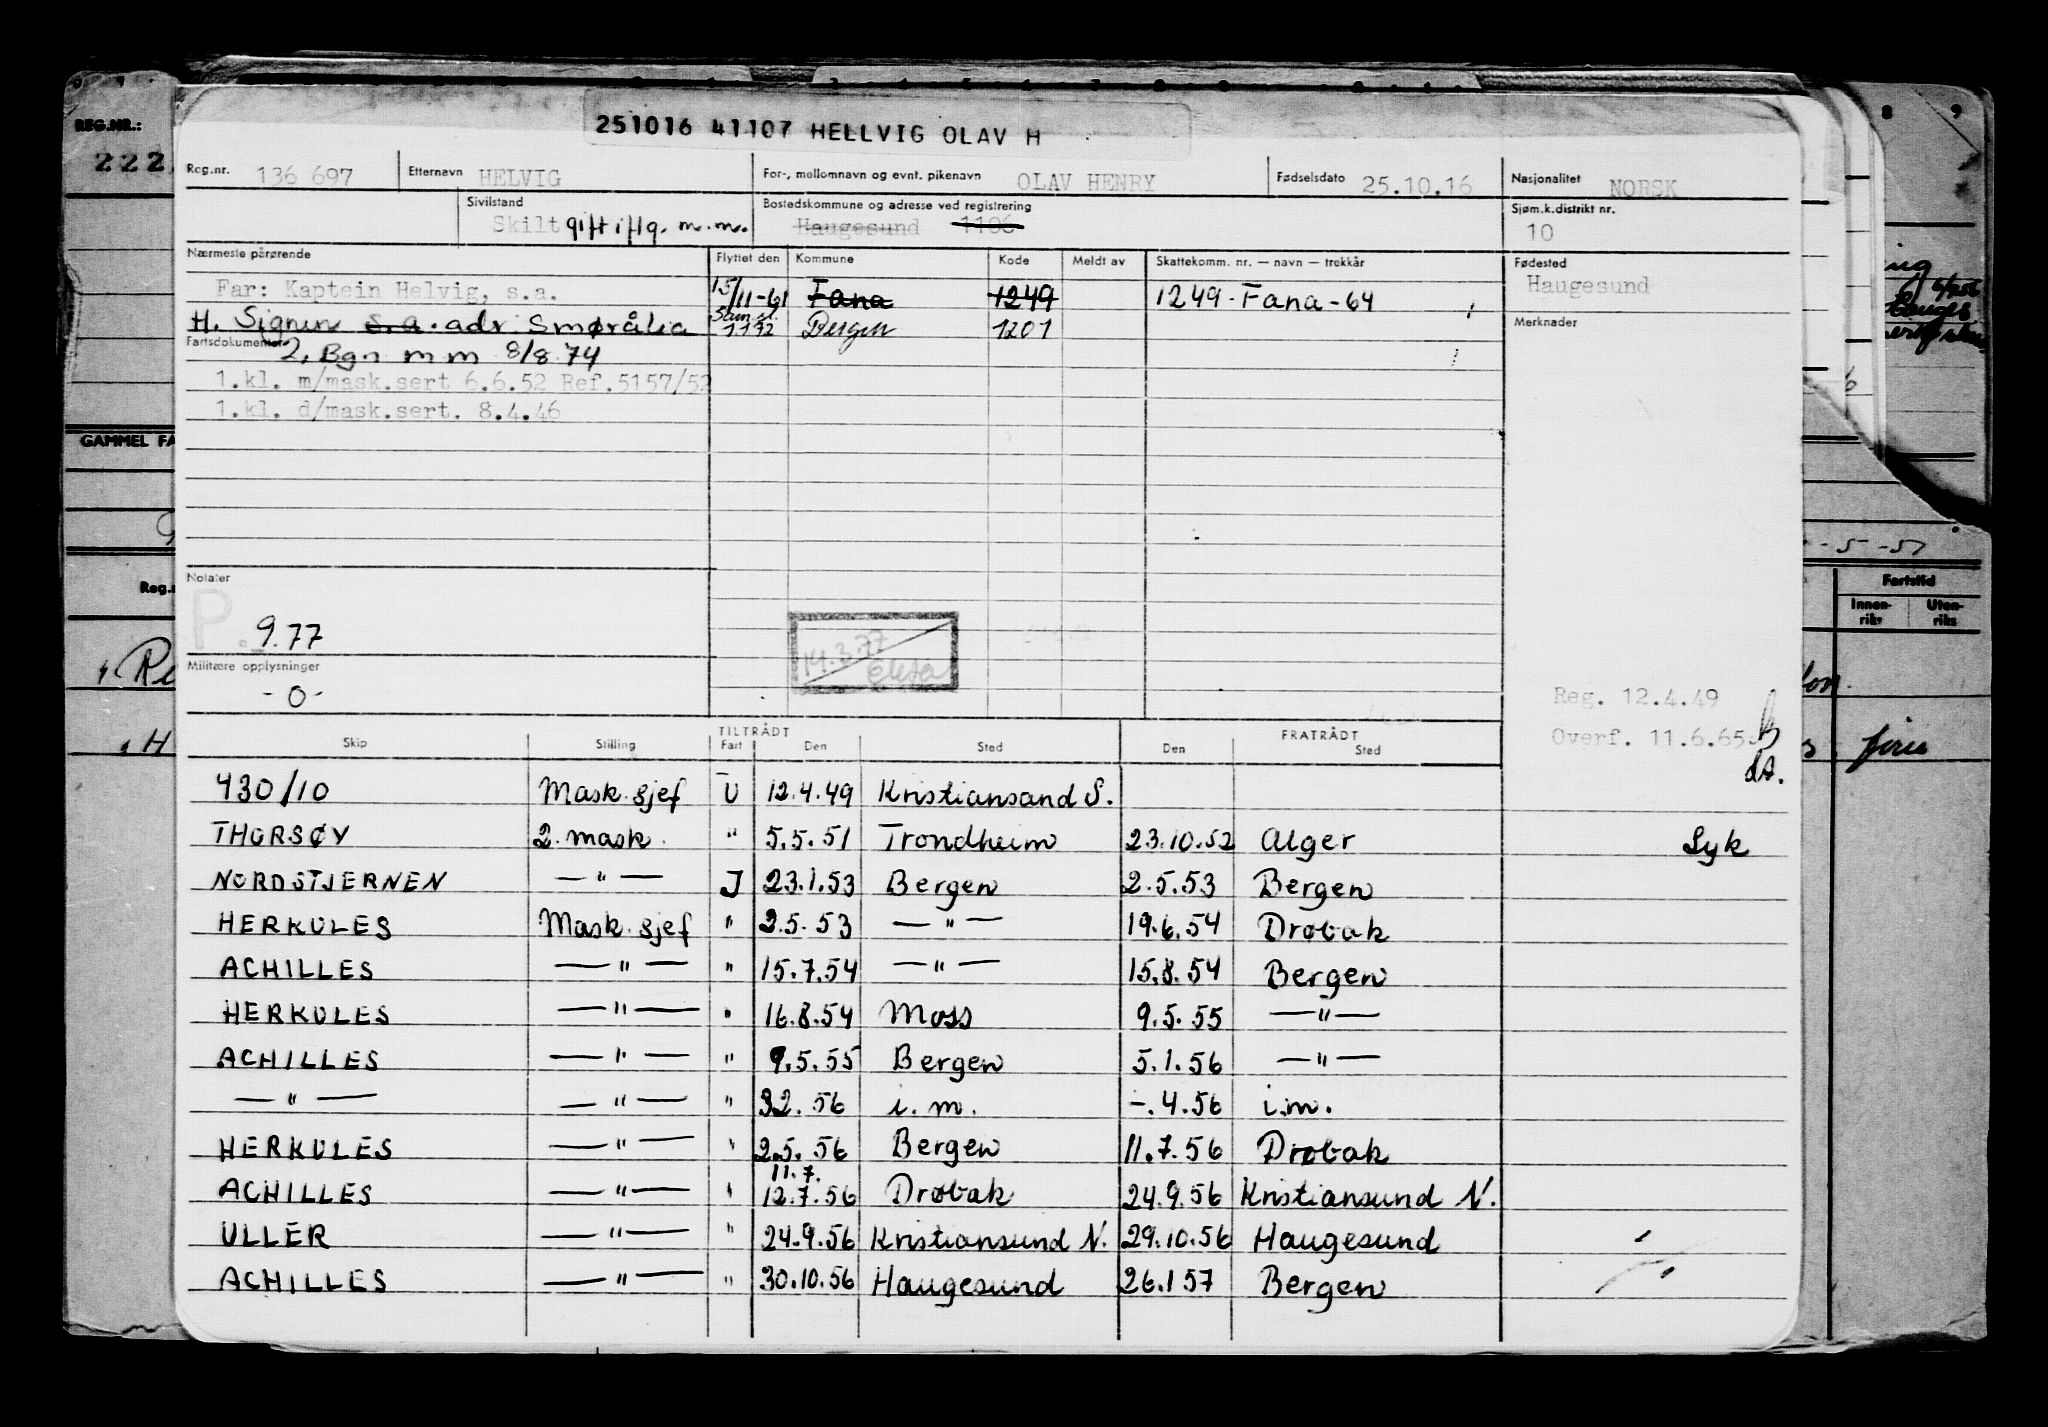 8 9
REG.NR.:
222
251016 41107 HELLVIG OLAV H
Reg.nr. 136 697 Etternavn HELVIG For-, mellomnavn og evnt. pikenavn OLAV HENRY Fødselsdato 25.10.16 Nasjonalitet NORSK
Sivilstand Bostedskommune og adresse ved registrering Sjøm.k.distrikt nr.
Skilt gift iflg. m.m. Haugesund 1106 10
Nærmeste pårørende Flyttet den Kommune Kode Meldt av Skattekomm. nr. — navn — trekkår Fødested
Far: Kaptein Helvig, s.a. 15/11-61 Fana 1249 1249 - Fana - 64 Haugesund
H. Signun s.a. adr. Smørålia 1172 Bergen 1201 Merknader
Fartsdokumenter 2, Bgn m m 8/8 74
1.kl. m/mask.sert 6.6.52 Ref.5157/52
1.kl. d/mask.sert. 8.4.46
GAMMEL FA
-5-57
Notater
P. 9.77
14.3.77
Fartstid
Innen-riks Uten-riks
Reg.
Militære opplysninger
-0-
Reg. 12.4.49
Overf. 11.6.65
TILTRÅDT FRATRÅDT
Skip Stilling Fart Den Sted Den Sted
430/10 Mask.sjef U 12.4.49 Kristiansand S.
THORSØY 2. mask. " 5.5.51 Trondheim 23.10.52 Alger Syk
NORDSTJERNEN — " — J 23.1.53 Bergen 2.5.53 Bergen
HERKULES Mask.sjef " 2.5.53 — " — 19.6.54 Drøbak
ACHILLES — " — " 15.7.54 — " — 15.8.54 Bergen
HERKULES — " — " 16.8.54 Moss 9.5.55 — " —
ACHILLES — " — " 9.5.55 Bergen 5.1.56 — " —
— " — — " — " 3.2.56 i.m. -.4.56 i.m.
HERKULES — " — " 2.5.56 Bergen 11.7.56 Drøbak
11.7.
ACHILLES — " — " 12.7.56 Drøbak 24.9.56 Kristiansund N.
ULLER — " — " 24.9.56 Kristiansund N. 29.10.56 Haugesund
ACHILLES — " — " 30.10.56 Haugesund 26.1 57 Bergen